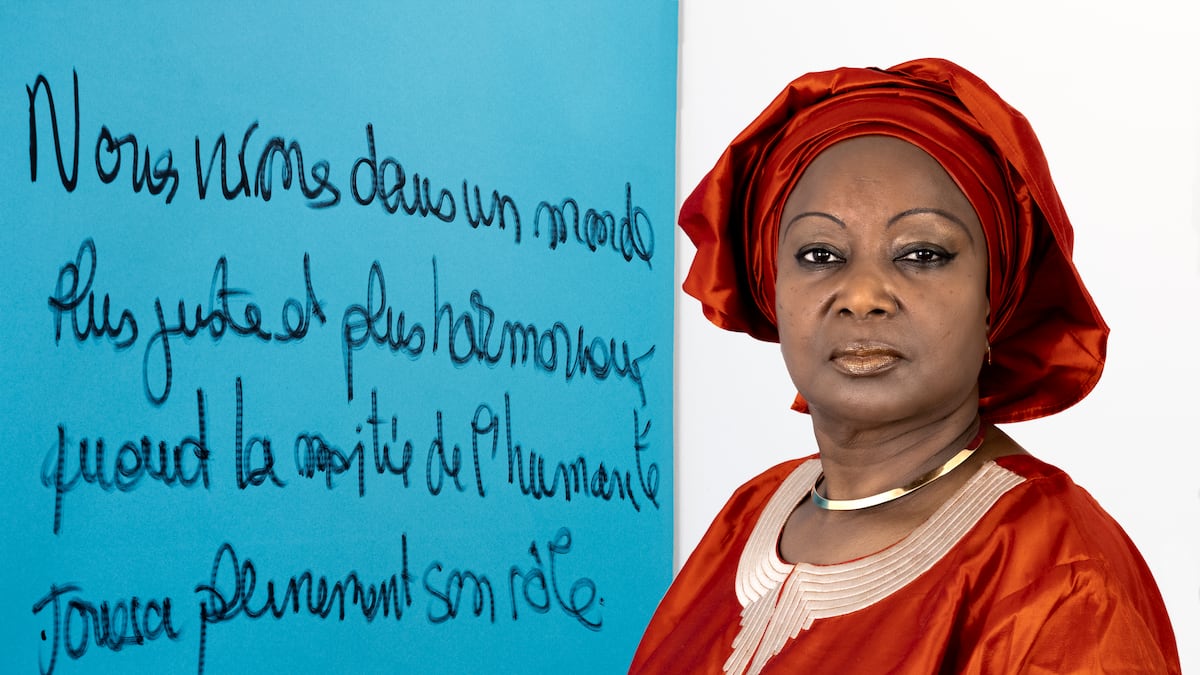 Nous vivons dans un monde
Plus juste et plus harmonieux
quand la moitié de l'humanité
Jouera pleinement son rôle.